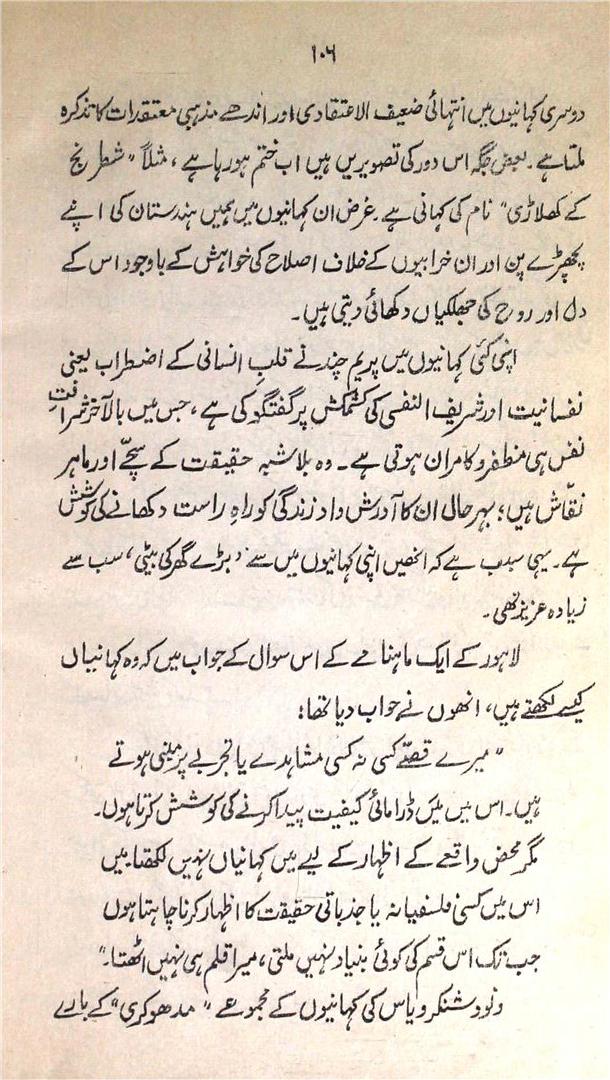 ۱۰۶
دوسری کہانیوں میں انتہائی ضعیف الاعتقادی اور اندھے مذہبی معتقدات کا تذکرہ
ملتا ہے۔ بعض جگہ اس دور کی تصویریں ہیں اب ختم ہو رہا ہے، مثلاً "شطرنج
کے کھلاڑی" نام کی کہانی ہے۔ غرض ان کہانیوں میں ہمیں ہندستان کی اپنے
پچھڑے پن اور ان خرابیوں کے خلاف اصلاح کی خواہش کے باوجود اس کے
دل اور روح کی جھلکیاں دکھائی دیتی ہیں۔
اپنی کئی کہانیوں میں پریم چند نے قلبِ انسانی کے اضطراب یعنی
نفسانیت اور شریف النفسی کی کشمکش پر گفتگو کی ہے، جس میں بالآخر شرافتِ
نفس ہی مظفر و کامران ہوتی ہے۔ وہ بلاشبہ حقیقت کے سچّے اور ماہر
نقّاش ہیں؛ بہرحال ان کا آدرش واد زندگی کو راہِ راست دکھانے کی کوشش
ہے۔ یہی سبب ہے کہ انھیں اپنی کہانیوں میں سے 'بڑے گھر کی بیٹی' سب سے
زیادہ عزیز تھی۔
لاہور کے ایک ماہنامے کے اس سوال کے جواب میں کہ وہ کہانیاں
کیسے لکھتے ہیں، انھوں نے جواب دیا تھا؛
"میرے قصّے کسی نہ کسی مشاہدے یا تجربے پر مبنی ہوتے
ہیں۔ اس میں میں ڈرامائی کیفیت پیدا کرنے کی کوشش کرتا ہوں۔
مگر محض واقعے کے اظہار کے لیے میں کہانیاں نہیں لکھتا۔ میں
اس میں کسی فلسفیانہ یا جذباتی حقیقت کا اظہار کرنا چاہتا ہوں
جب تک اس قسم کی کوئی بنیاد نہیں ملتی، میرا قلم ہی نہیں اٹھتا۔"
ونود شنکر ویاس کی کہانیوں کے مجموعے "مدھوکری" کے بارے